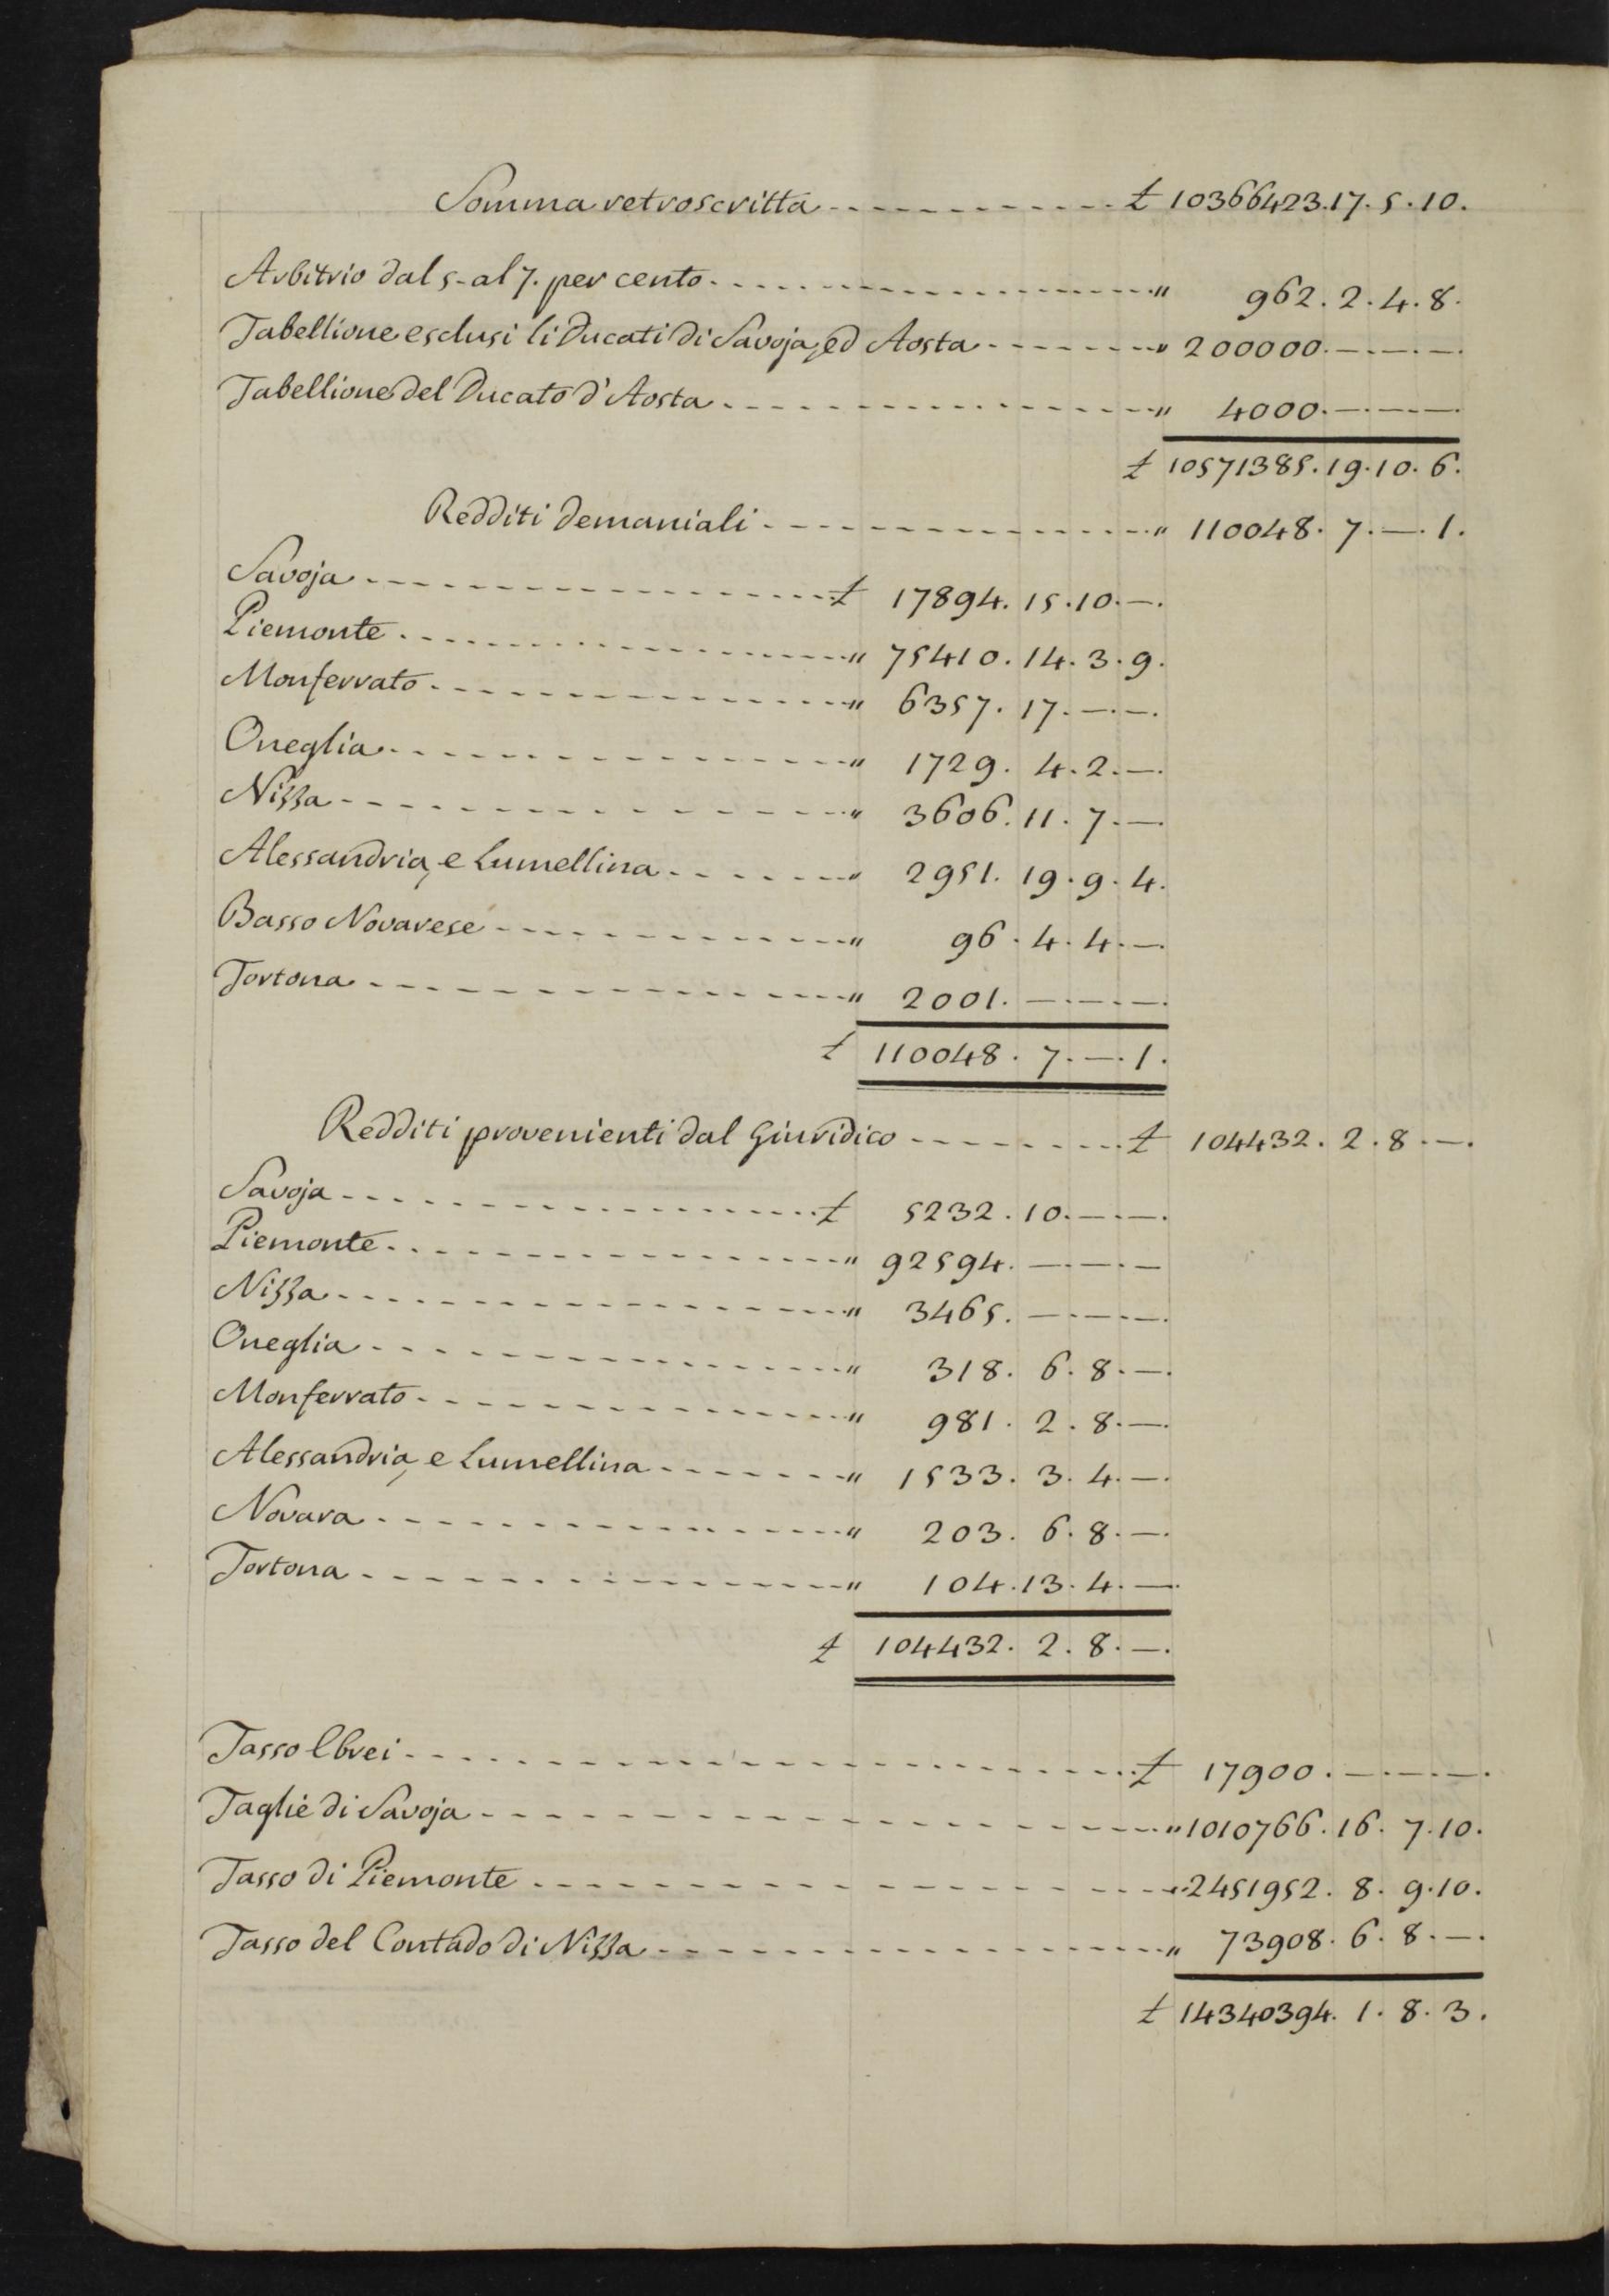 Somma retroscritta £ 10366423.17.5.10.
Arbitrio dal 5. al 7. per cento " 962.2.4.8.
Tabellione esclusi li Ducati di Savoja, ed Aosta " 200000.—.—.—.
Tabellione del Ducato d'Aosta " 4000.—.—.—.
£ 10571385.19.10.6.
Redditi demaniali " 110048.7.—.1.
Savoja £ 17894.15.10.—.
Piemonte " 75410.14.3.9.
Monferrato " 6357.17.—.—.
Oneglia " 1729.4.2.—.
Nizza " 3606.11.7.—.
Alessandria, e Lumellina " 2951.19.9.4.
Basso Novarese " 96.4.4.—.
Tortona " 2001.—.—.—.
£ 110048.7.—.1.
Redditi provenienti dal Giuridico £ 104432.2.8.—.
Savoja £ 5232.10.—.—.
Piemonte " 92594.—.—.—
Nizza " 3465.—.—.—.
Oneglia " 318.6.8.—.
Monferrato " 981.2.8.—.
Alessandria, e Lumellina " 1533.3.4.—.
Novara " 203.6.8.—.
Tortona " 104.13.4.—.
£ 104432.2.8.—.
Tasso Ebrei £ 17900.—.—.—.
Taglie di Savoja " 1010766.16.7.10.
Tasso di Piemonte " 2451952.8.9.10.
Tasso del Contado di Nizza " 73908.6.8.—.
£ 14340394.1.8.3.